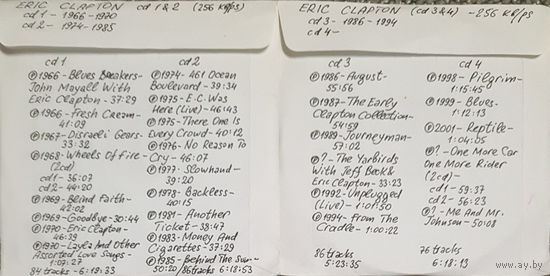 ERIC CLAPTON cd 1 & 2 (256 KB/ps)
cd 1 - 1966-1970
cd 2 - 1974-1985
cd 1
℗1966 - Blues Breakers -
John Mayall With
Eric Clapton - 37:29
℗1966 - Fresh Cream -
41:09
℗1967 - Disraeli Gears -
33:32
℗1968 - Wheels Of Fire -
(2cd)
cd 1 - 36:07
cd 2 - 44:20
℗1969 - Blind Faith -
42:02
℗1969 - Goodbye - 30:44
℗1970 - Eric Clapton -
46:29
℗1970 - Layla And Other
Assorted Love Songs -
1:09:27
84 tracks - 6:19:33
cd 2
℗1974 - 461 Ocean
Boulevard - 39:34
℗1975 - E.C. Was
Here (Live) - 46:43
℗1975 - There One Is
Every Crowd - 40:12
℗1976 - No Reason To
Cry - 46:07
℗1977 - Slowhand -
39:20
℗1978 - Backless -
40:15
℗1981 - Another
Ticket - 38:47
℗1983 - Money And
Cigarettes - 37:29
℗1985 - Behind The Sun -
50:20 / 86 tracks 6:18:53
ERIC CLAPTON (cd 3 & 4) - 256 KB/ps
cd 3 - 1986-1994
cd 4 -
cd 3
℗1986 - August -
55:56
℗1987 - The Early
Clapton Collection -
54:59
℗1989 - Journeyman -
57:02
℗? - The Yarbirds
With Jeff Beck &
Eric Clapton - 33:23
℗1992 - Unplugged
(Live) - 1:01:50
℗1994 - From The
Cradle - 1:00:22
86 tracks
5:23:35
cd 4
℗1998 - Pilgrim -
1:15:45
℗1999 - Blues -
1:12:13
℗2001 - Reptile -
1:04:05
℗? - One More Car
One More Rider
(2cd) -
cd 1 - 59:37
cd 2 - 56:23
℗? - Me And Mr.
Johnson - 50:08
76 tracks
6:18:13
www.ay.by